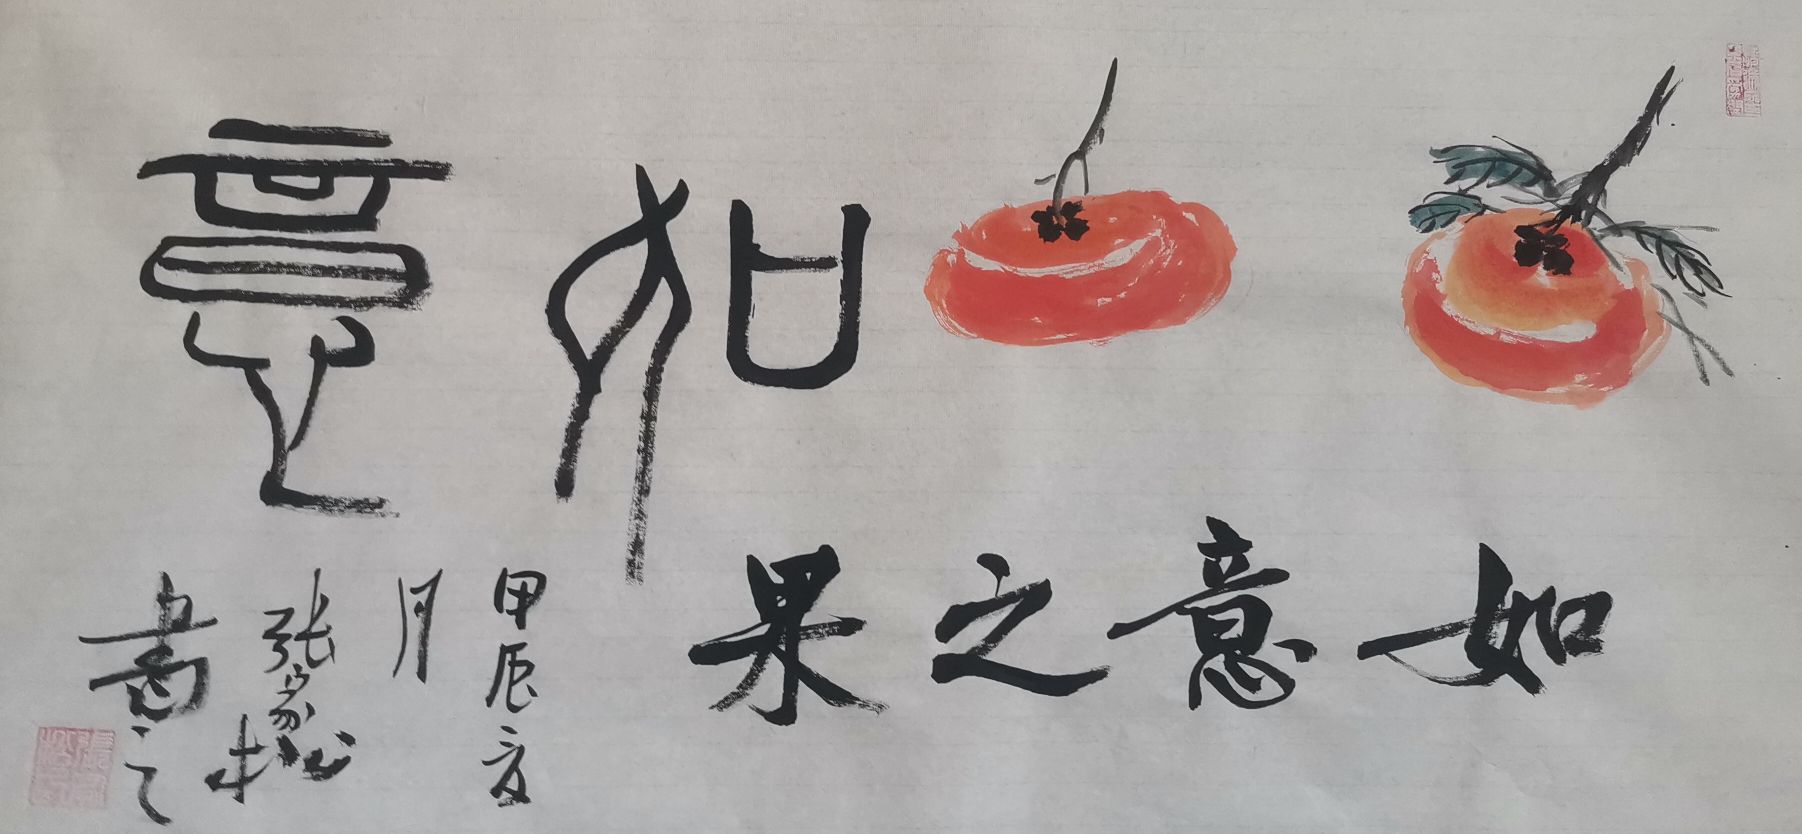 如意
如意之果
甲辰夏
月
张家松
书之